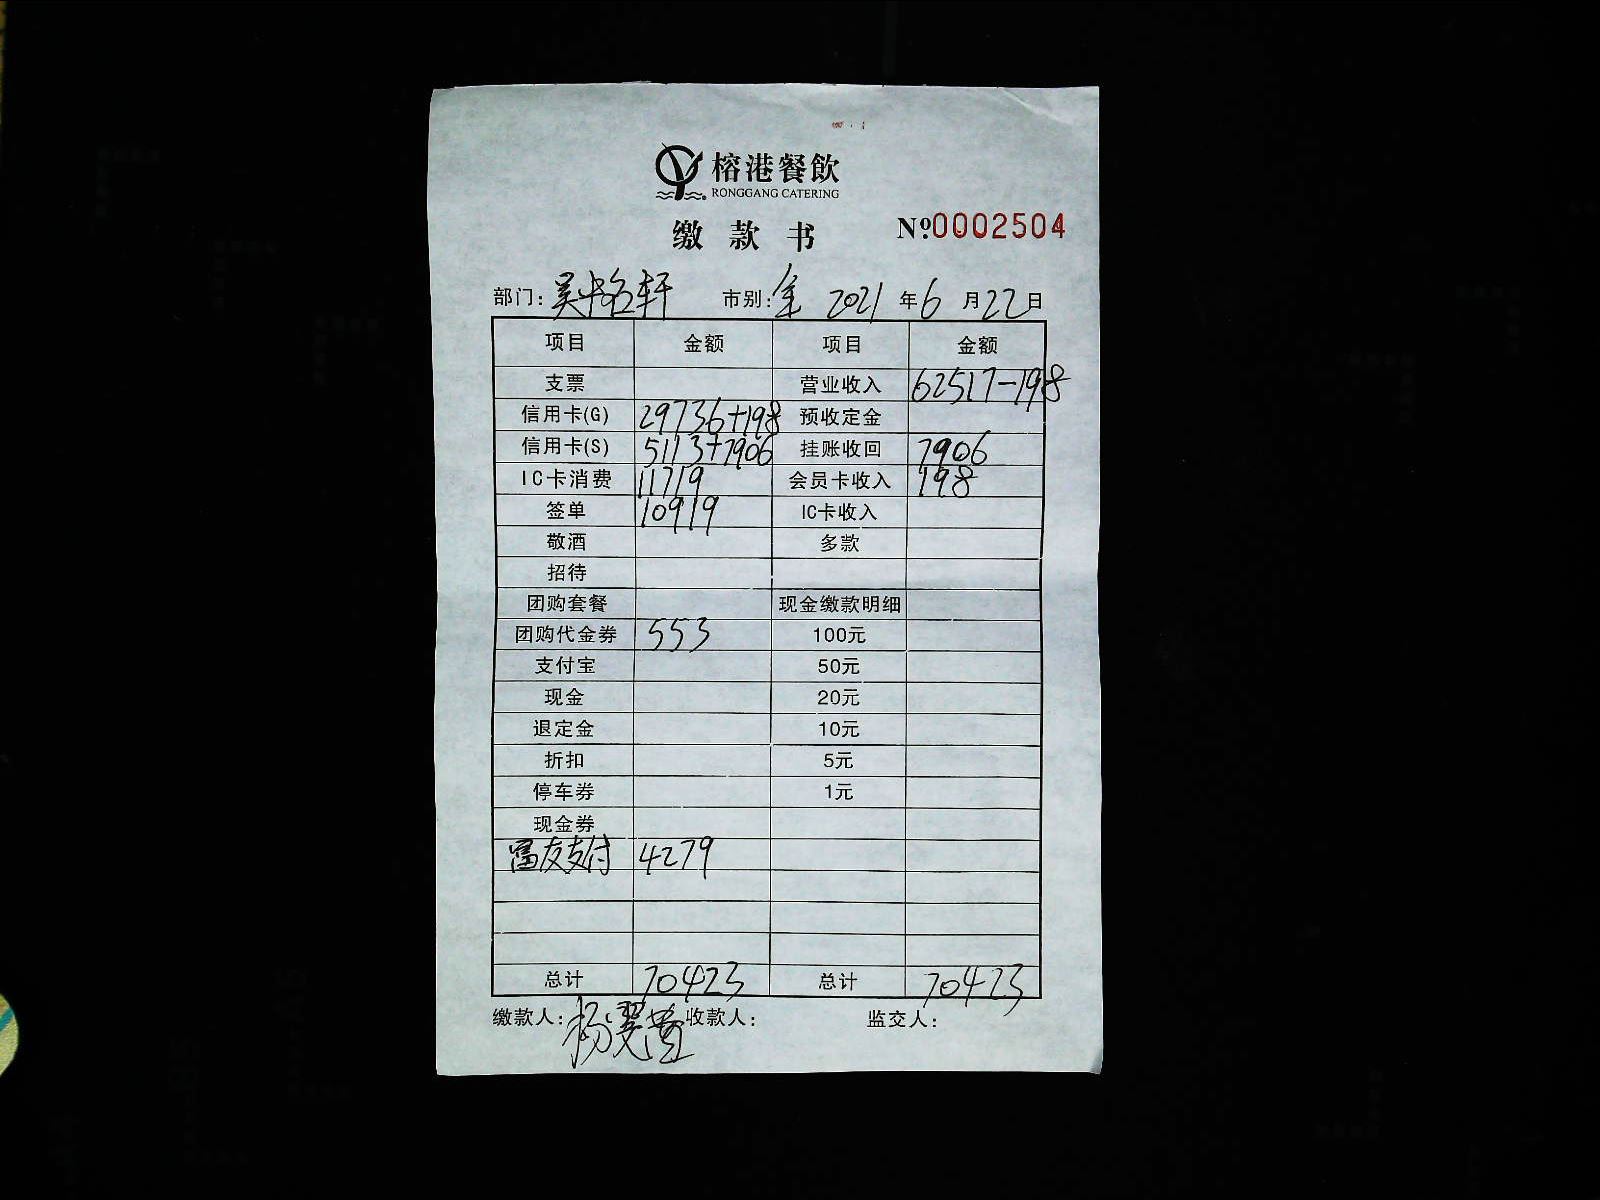 榕港餐飲
RONGGANG CATERING
缴款书 №:0002504
部门: 市别: 全 2021年6月22日
项目 金额 项目 金额
支票 营业收入 62517-198
信用卡(G) 29736+198 预收定金
信用卡(S) 5113+7906 挂账收回 7906
IC卡消费 11719 会员卡收入 198
签单 10919 IC卡收入
敬酒 多款
招待
团购套餐 现金缴款明细
团购代金券 553 100元
支付宝 50元
现金 20元
退定金 10元
折扣 5元
停车券 1元
现金券
富友支付 4279
总计 70423 总计 70423
缴款人: 杨 收款人: 监交人: